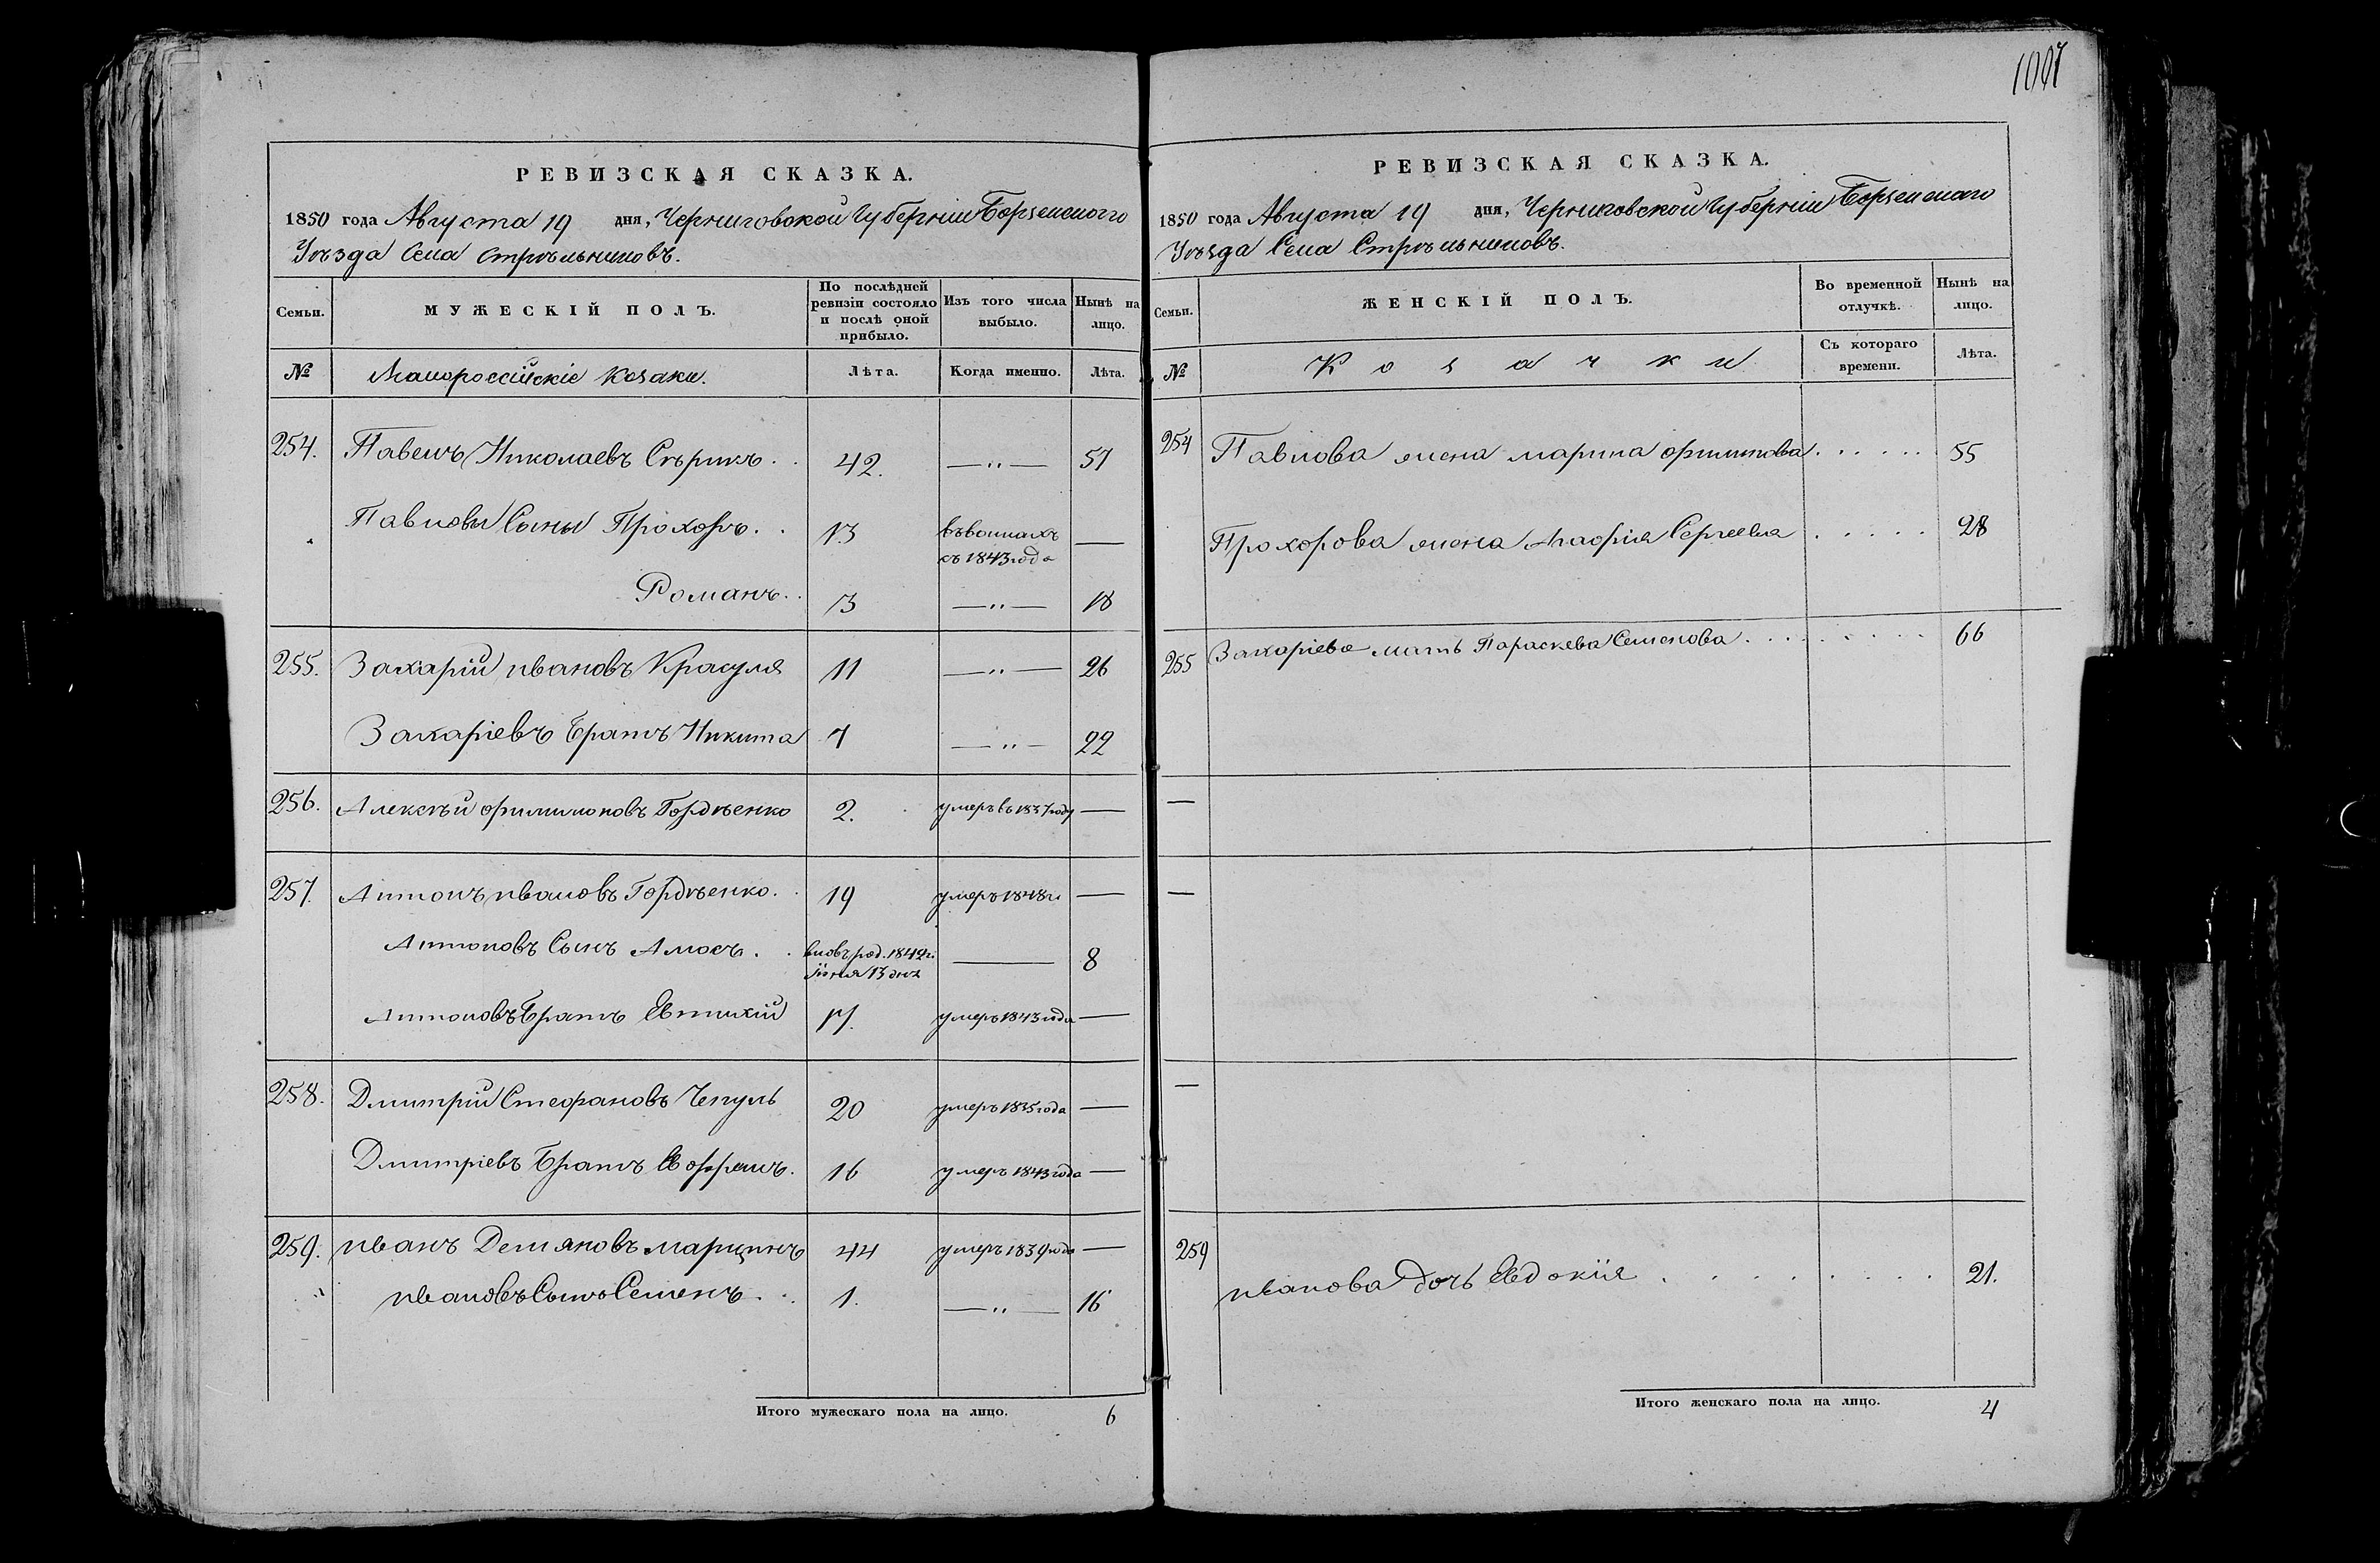 1007
РЕВИЗСКАЯ СКАЗКА.
1850 года Августа 19 дня, Черниговской Губерніи Борзенского
Уѣзда Села Стрѣльниковъ.
Семьи. МУЖЕСКІЙ ПОЛЪ. По послѣдней ревизіи состояло и послѣ оной прибыло. Изъ того числа выбыло. Нынѣ на лицо.
№ Малороссійскіе козаки. Лѣта. Когда именно. Лѣта.
254. Павелъ Николаевъ Сѣрикъ . . 42. —"— 57
Павловы Сыны Прохоръ . . 13 въ воинахъ —
съ 1843 года
Романъ . . 3 —"— 18
255. Захарій ивановъ Красуля 11 —"— 26
Захаріевъ братъ Никита 7 —"— 22
256. Алексѣй филимоновъ Гордѣенко 2. умеръ въ 1837 году —
257. Антонъ ивановъ Гордѣенко . . 19 умеръ 1848 г. —
Антоновъ Сынъ Амосъ . . вновь род. 1842 г. — 8
іюня 13 дня
Антоновъ братъ Евтихій 17. умеръ 1843 года —
258. Дмитрій Стефановъ Чепуль 20 умеръ 1835 года —
Дмитріевъ братъ Ефремъ . 16 умеръ 1843 года —
259. иванъ Демяновъ марцинъ 44 умеръ 1839 года —
ивановъ Сынъ Семенъ . . 1. —"— 16
Итого мужескаго пола на лицо. 6
РЕВИЗСКАЯ СКАЗКА.
1850 года Августа 19 дня, Черниговской Губерніи Борзенскаго
Уѣзда Села Стрѣльниковъ.
Семьи. ЖЕНСКІЙ ПОЛЪ. Во временной отлучкѣ. Нынѣ на лицо.
№ Козачки Съ котораго времени. Лѣта.
254 Павлова жена марина филипова . . . . . 55
Прохорова жена Агафія Сергеева . . . . . 28
255 Захаріева мать Параскева Семенова . . . . . . . 66
—
—
—
259
иванова дочь Евдокія . . . . . . . 21.
Итого женскаго пола на лицо. 4